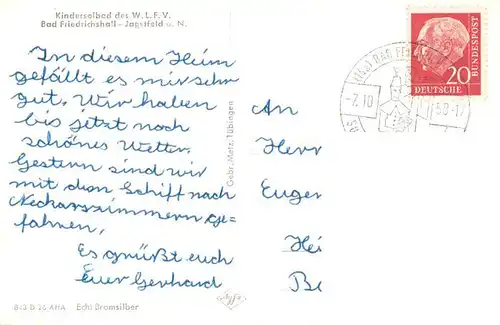 Kindersolbad des W.L.F.V.
Bad Friedrichshall-Jagstfeld u. N.
In diesem Heim
gefällt es mir sehr
gut. Wir haben
bis jetzt noch
schönes Wetter.
Gestern sind wir
mit dem Schiff nach
Neckarszimmern ge-
fahren.
Es grüßt euch
Euer Gerhard
Gebr. Metz, Tübingen
An
Herr
Eugen
Hei
Be
20
DEUTSCHE
BUNDESPOST
-7.10
58-17
Echt Bromsilber